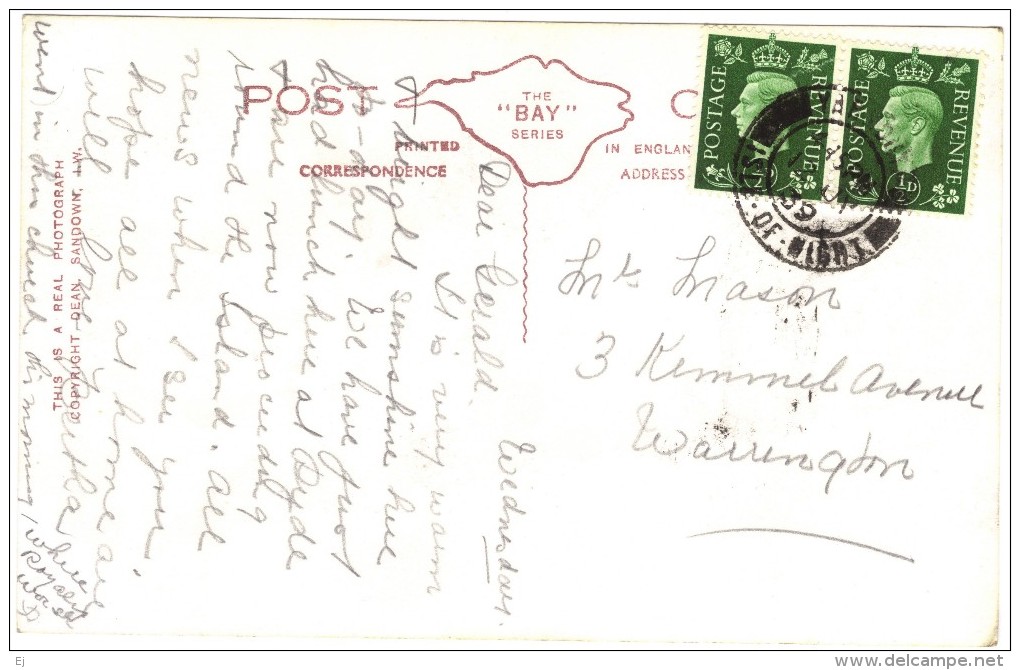 POST
THE
"BAY"
SERIES
PRINTED
IN ENGLAND
CORRESPONDENCE
ADDRESS
POSTAGE
REVENUE
POSTAGE
REVENUE
½D
OF WIGHT
39
THIS IS A REAL PHOTOGRAPH
COPYRIGHT DEAN, SANDOWN, I.W.
Wednesday.
Dear Gerald.
It is very warm
& bright sunshine here
to-day. We have just
had lunch here at Ryde
& are now proceeding
round the Island. All
news when I see you.
hope all at home are
well Love Bertha
went in the church this morning / where
Royalty
was
Mr Mason
3 Kemmel Avenue
Warrington
Ej
delcampe.net